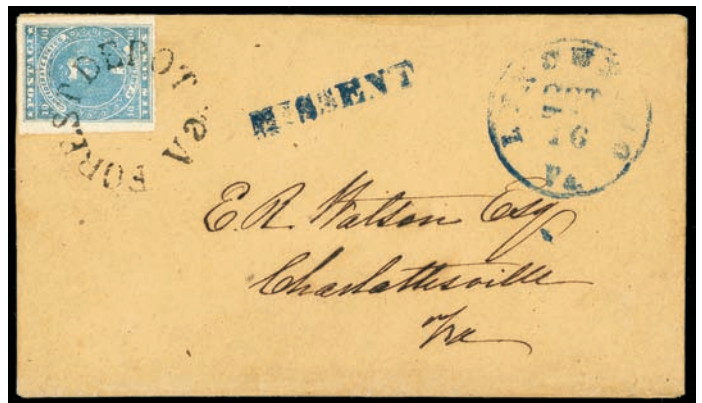 POSTAGE
TEN CENTS
10
10
FOREST DEPOT Va
MISSENT
OCT
16
Pa.
E. R. Watson Esq
Charlottesville
Va